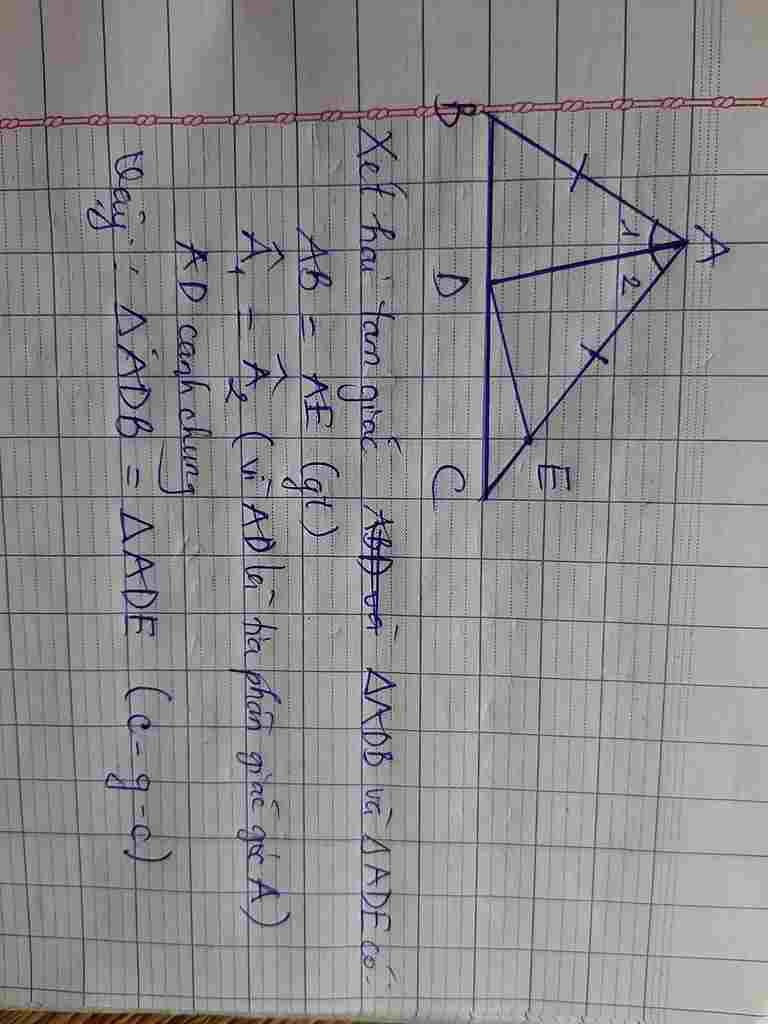 A
1 2
B D C
E
Xét hai tam giác ABD và ΔADB và ΔADE có:
AB = AE (gt)
Â₁ = Â₂ (vì AD là tia phân giác góc A)
AD cạnh chung
Vậy: ΔADB = ΔADE (c-g-c)